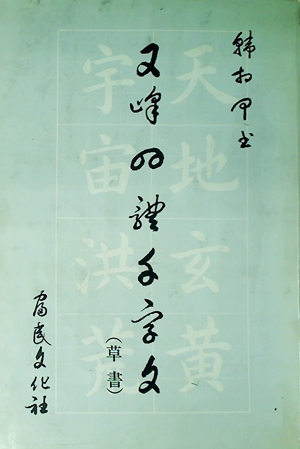 韓相甲書
天地玄黃
又峰四體千字文
(草書)
宇宙洪荒
富民文化社